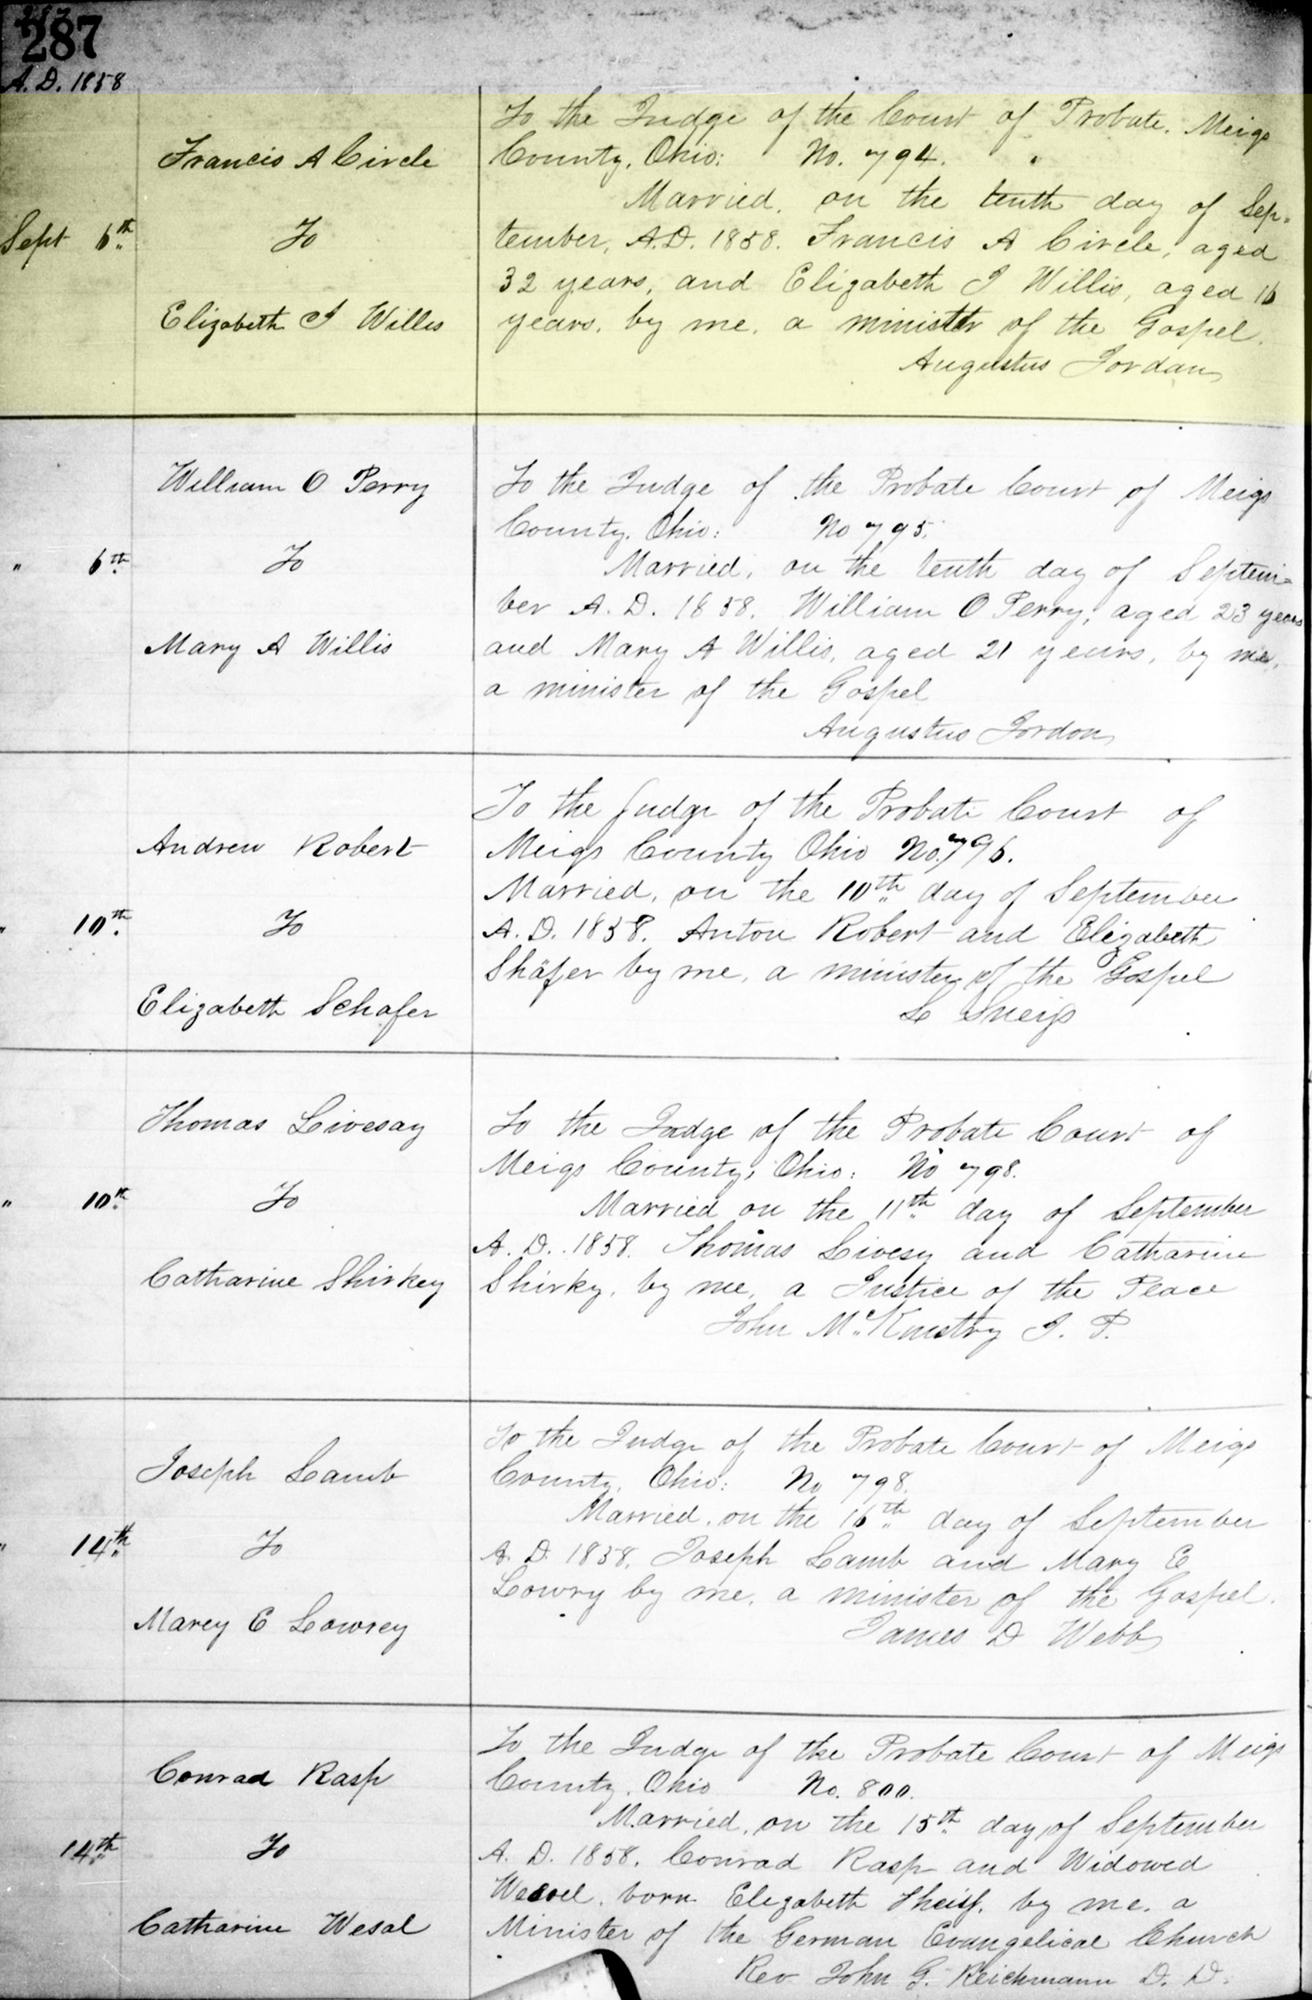 287
A. D. 1858
Francis A Circle
Sept 6th To
Elizabeth J Willis
To the Judge of the Court of Probate, Meigs
County, Ohio: No. 794.
Married, on the tenth day of Sep-
tember, A.D. 1858. Francis A Circle, aged
32 years, and Elizabeth J Willis, aged 16
years, by me, a minister of the Gospel.
Augustus Jordan
William O Perry
" 6th To
Mary A Willis
To the Judge of the Probate Court of Meigs
County, Ohio: No 795.
Married, on the tenth day of Septem-
ber A. D. 1858. William O Perry, aged 23 years
and Mary A Willis, aged 21 years, by me,
a minister of the Gospel
Augustus Jordon
Andrew Robert
" 10th To
Elizabeth Schafer
To the Judge of the Probate Court of
Meigs County Ohio No. 796.
Married, on the 10th day of September
A. D. 1858. Anton Robert and Elizabeth
Shäfer by me, a minister of the Gospel
Thomas Livesay
" 10th To
Catharine Shirkey
To the Judge of the Probate Court of
Meigs County, Ohio: No 798.
Married on the 11th day of September
A. D. 1858. Thomas Livesy and Catharine
Shirky, by me, a Justice of the Peace
John McKinstry J. P.
Joseph Lamb
" 14th To
Marey E Lowrey
To the Judge of the Probate Court of Meigs
County, Ohio: No 798.
Married, on the 16th day of September
A. D. 1858. Joseph Lamb and Mary E
Lowry by me, a minister of the Gospel.
James D Webb
Conrad Rasp
14th To
Catharine Wesal
To the Judge of the Probate Court of Meigs
County, Ohio No. 800.
Married, on the 15th day of September
A. D. 1858. Conrad Rasp and Widowed
born Elizabeth by me, a
Minister of the German Evangelical Church
Rev John G. Reichmann D. D.